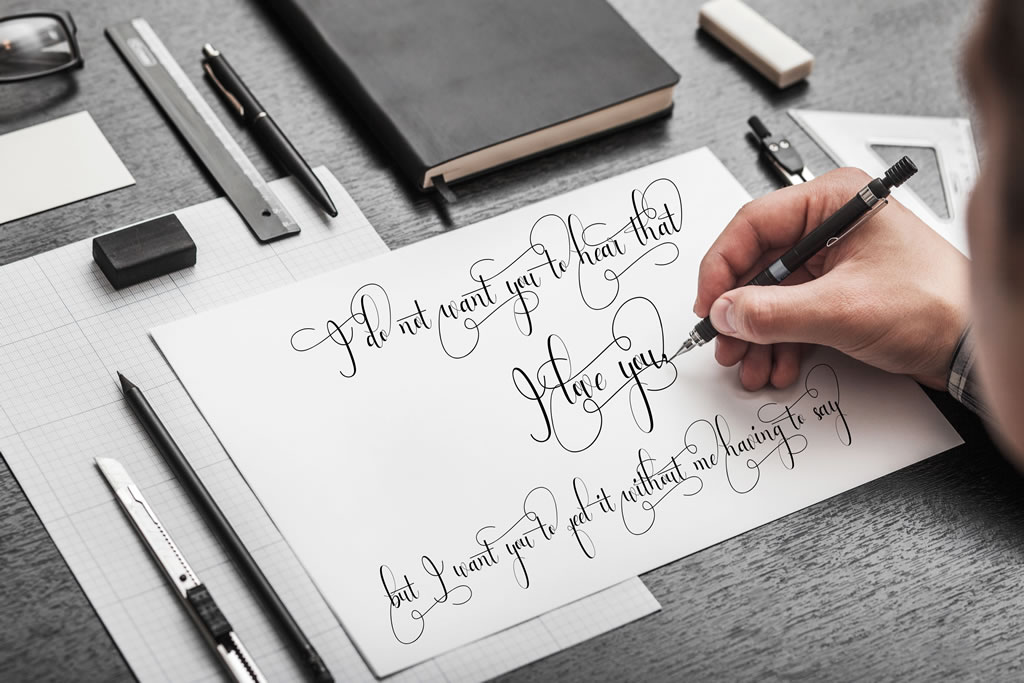 I do not want you to hear that
I love you,
but I want you to feel it without me having to say